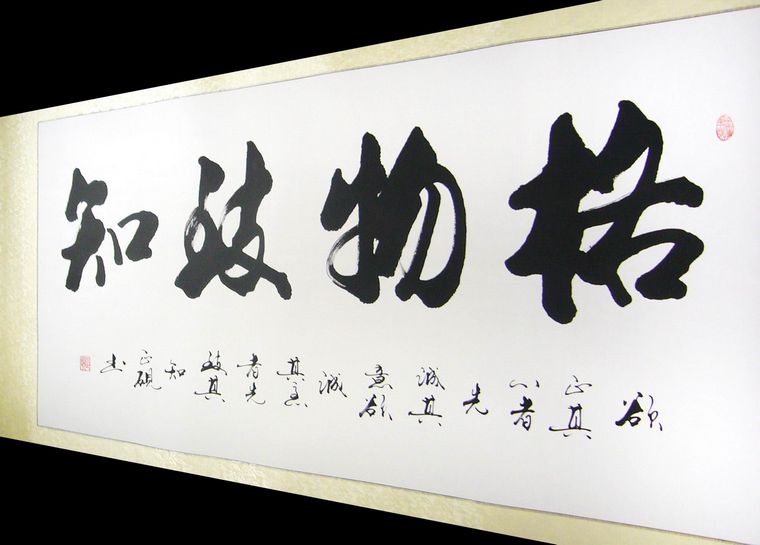 格物致知
欲正其心者先誠其意欲誠其意者先致其知正硯书